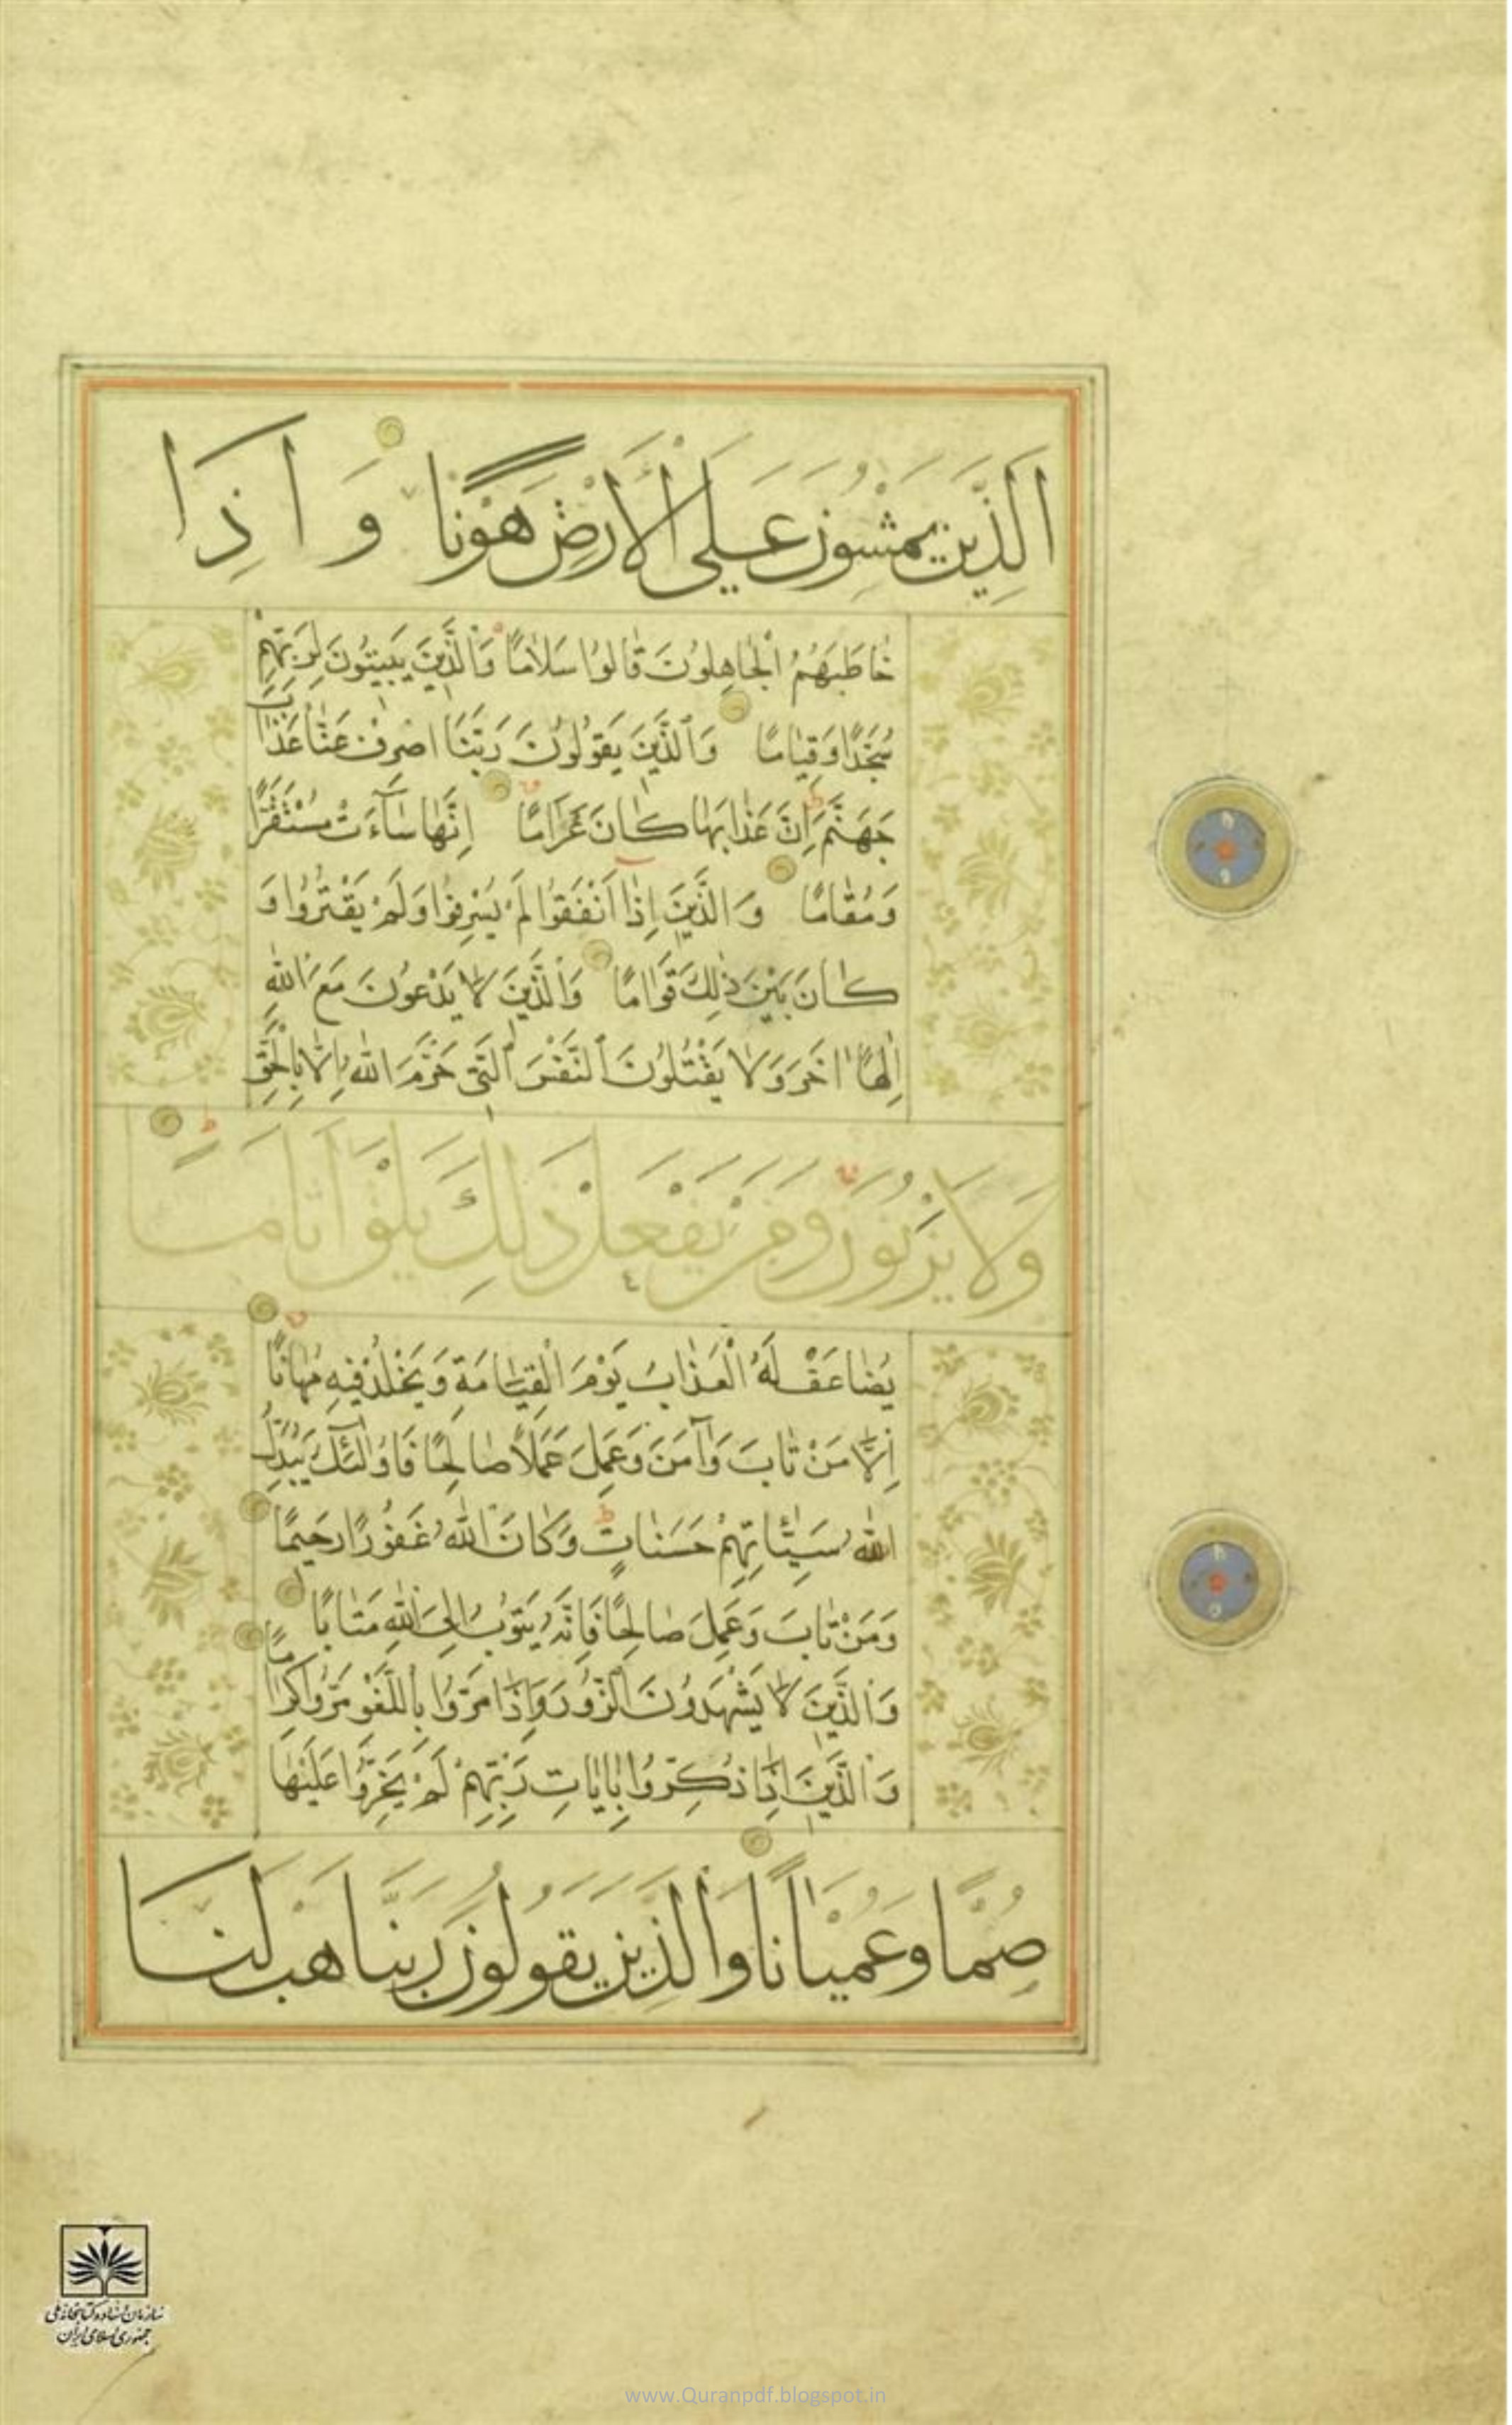 اَلَّذِينَ يَمْشُونَ عَلَى الْأَرْضِ هَوْنًا وَاِذَا
خَاطَبَهُمُ الْجَاهِلُونَ قَالُوا سَلَامًا وَالَّذِينَ يَبِيتُونَ لِرَبِّهِمْ
سُجَّدًا وَقِيَامًا وَالَّذِينَ يَقُولُونَ رَبَّنَا اصْرِفْ عَنَّا عَذَابَ
جَهَنَّمَ اِنَّ عَذَابَهَا كَانَ غَرَامًا اِنَّهَا سَآءَتْ مُسْتَقَرًّا
وَمُقَامًا وَالَّذِينَ اِذَا اَنْفَقُوا لَمْ يُسْرِفُوا وَلَمْ يَقْتُرُوا وَ
كَانَ بَيْنَ ذٰلِكَ قَوَامًا وَالَّذِينَ لَا يَدْعُونَ مَعَ اللّٰهِ
اِلٰهًا اٰخَرَ وَلَا يَقْتُلُونَ النَّفْسَ الَّتِي حَرَّمَ اللّٰهُ اِلَّا بِالْحَقِّ
وَلَا يَزْنُونَ وَمَنْ يَفْعَلْ ذٰلِكَ يَلْقَ اَثَامًا
يُضَاعَفْ لَهُ الْعَذَابُ يَوْمَ الْقِيَامَةِ وَيَخْلُدْ فِيهِ مُهَانًا
اِلَّا مَنْ تَابَ وَآمَنَ وَعَمِلَ عَمَلًا صَالِحًا فَاُولٰئِكَ يُبَدِّلُ
اللّٰهُ سَيِّئَاتِهِمْ حَسَنَاتٍ وَكَانَ اللّٰهُ غَفُورًا رَحِيمًا
وَمَنْ تَابَ وَعَمِلَ صَالِحًا فَاِنَّهُ يَتُوبُ اِلَى اللّٰهِ مَتَابًا
وَالَّذِينَ لَا يَشْهَدُونَ الزُّورَ وَاِذَا مَرُّوا بِاللَّغْوِ مَرُّوا كِرَامًا
وَالَّذِينَ اِذَا ذُكِّرُوا بِاٰيَاتِ رَبِّهِمْ لَمْ يَخِرُّوا عَلَيْهَا
صُمًّا وَعُمْيَانًا وَالَّذِينَ يَقُولُونَ رَبَّنَا هَبْ لَنَا
سازمان اسناد و کتابخانه ملی
جمهوری اسلامی ایران
www.Quranpdf.blogspot.in